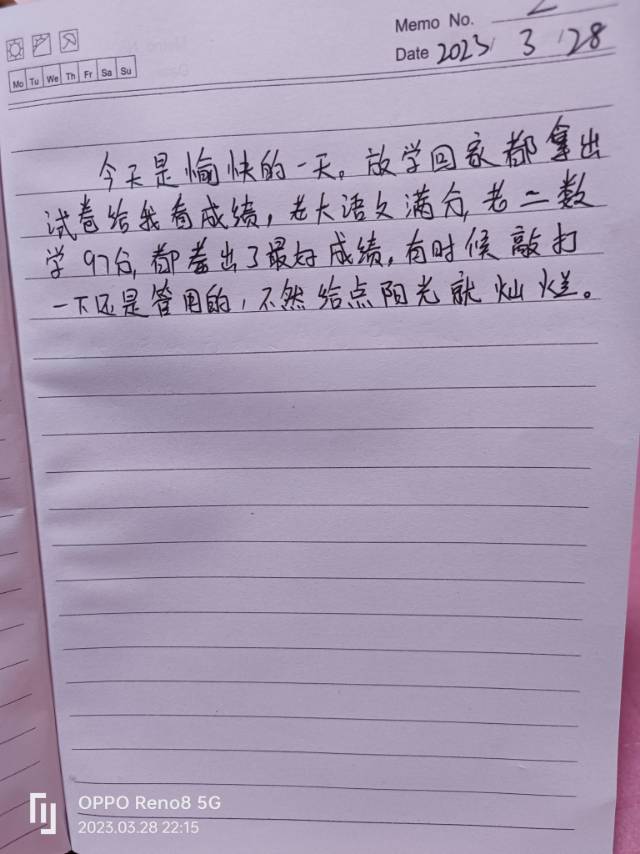 Memo No. 2
Date 2023/ 3 /28
Mo Tu We Th Fr Sa Su
今天是愉快的一天。放学回家都拿出
试卷给我看成绩，老大语文满分，老二数
学97分，都考出了最好成绩，有时候敲打
一下还是管用的，不然给点阳光就灿烂。
OPPO Reno8 5G
2023.03.28 22:15